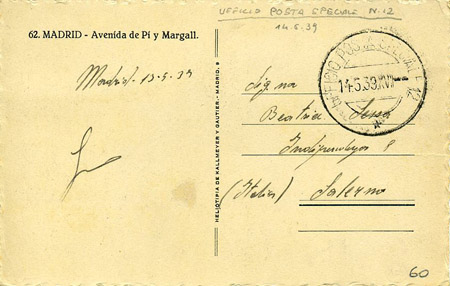 UFFICIO POSTA SPECIALE N.12
14.5.39
62. MADRID - Avenida de Pi y Margall.
Madrid - 13-5-39
HELIOTIPIA DE KALLMEYER Y GAUTIER.-MADRID, 8
UFFICIO POSTA SPECIALE 12
14.5.39.XVII
Sig.na
Beatrice
(Italia) Salerno
60